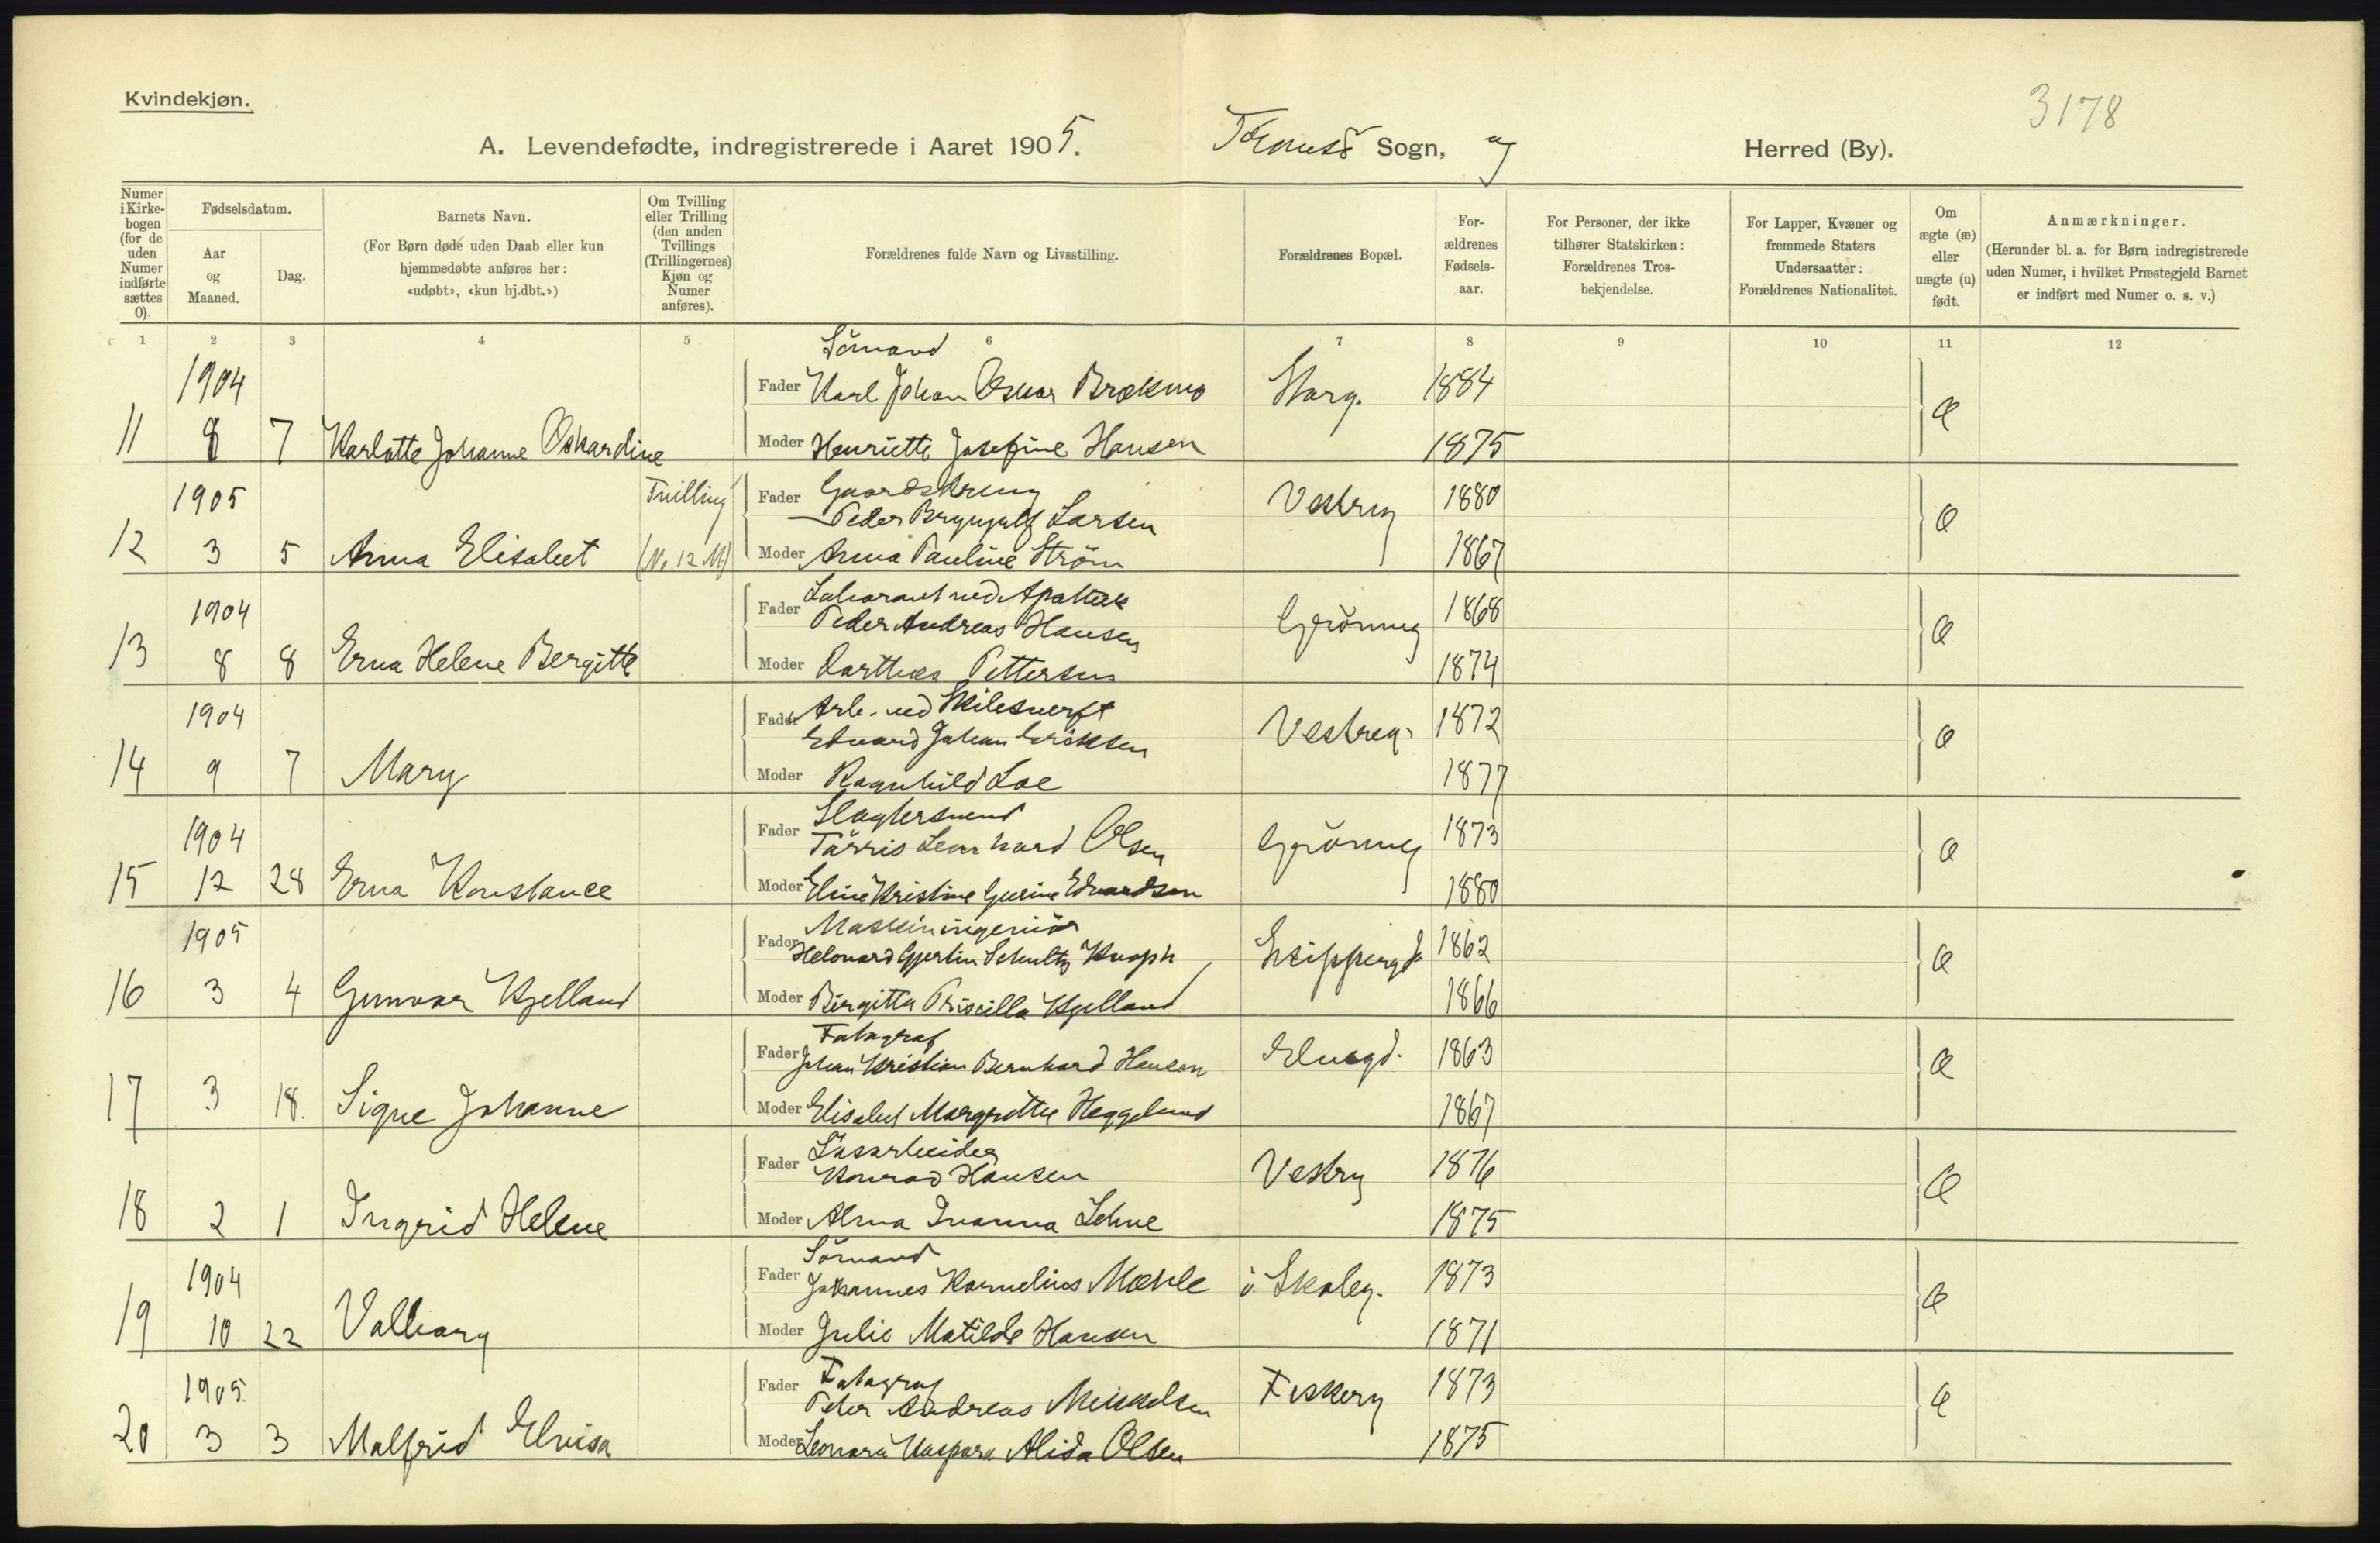 Kvindekjøn.
3178
A. Levendefødte, indregistrerede i Aaret 1905. Tromsö Sogn, og Herred (By).
Numer i Kirkebogen (for de uden Numer indførte sættes 0).
Fødselsdatum.
Aar og Maaned.
Dag.
Barnets Navn.
(For Børn døde uden Daab eller kun hjemmedøbte anføres her: «udøbt», «kun hj.dbt.»)
Om Tvilling eller Trilling (den anden Tvillings (Trillingernes) Kjøn og Numer anføres).
Forældrenes fulde Navn og Livsstilling.
Forældrenes Bopæl.
Forældrenes Fødselsaar.
For Personer, der ikke tilhører Statskirken: Forældrenes Trosbekjendelse.
For Lapper, Kvæner og fremmede Staters Undersaatter: Forældrenes Nationalitet.
Om ægte (æ) eller uægte (u) født.
Anmærkninger.
(Herunder bl. a. for Børn indregistrerede uden Numer, i hvilket Præstegjeld Barnet er indført med Numer o. s. v.)
1 2 3 4 5 6 7 8 9 10 11 12
Sömand
1904 Fader Karl Johan Oskar Brækmo Storg. 1884 æ
11 8 7 Karlotte Johanne Oskardine Moder Henriette Josefine Hansen 1875
1905 Tvilling Fader Gaardskreng Vestreg 1880 æ
Peder Brynjulf Larsen
12 3 5 Anna Elisabet (No. 12 M) Moder Anna Pauline Ström 1867
Laborant ved Apothek
1904 Fader Peder Andreas Hansen Grönneg 1868 æ
13 8 8 Erna Helene Bergitte Moder Dorthea Pettersen 1874
1904 Fader Arb. ved Skibsverft Vestreg. 1872 æ
Edvard Johan Eriksen
14 9 7 Mary Moder Ragnhild Loe 1877
Slagtersvend
1904 Fader Tärris Leonhard Olsen Grönneg 1873 æ
15 12 28 Erna Konstance Moder Eline Kristine Gurine Edvardsen 1880
1905 Maskiningeniör
Fader Helouard Gjertin Schultz Knoph Skipperg 1862 æ
16 3 4 Gunvor Kjelland Moder Birgitta Priscilla Kjelland 1866
Fotograf
Fader Johan Kristian Bernhard Hansen Elvegd. 1863 æ
17 3 18. Signe Johanne Moder Elisabet Margrethe Heggelund 1867
Løsarbeider
Fader Konrad Hansen Vestrg 1876 æ
18 2 1 Ingrid Helene Moder Alma Ivanna Lehne 1875
Sömand
1904 Fader Johannes Kornelius Mæhle ö. Skoleg. 1873 æ
19 10 22 Valborg Moder Julie Matilde Hansen 1871
1905. Fader Fotograf Fiskerg 1873 æ
Peder Andreas Mikkelsen
20 3 3 Malfrid Elvisa Moder Leonora Kaspara Alida Olsen 1875